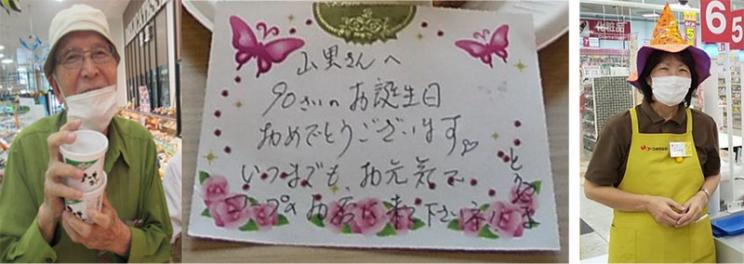 山里さんへ
90さいのお誕生日
おめでとうございます
いつまでも、お元気で
コープのお店に来て下さいネ!!
化粧品
65